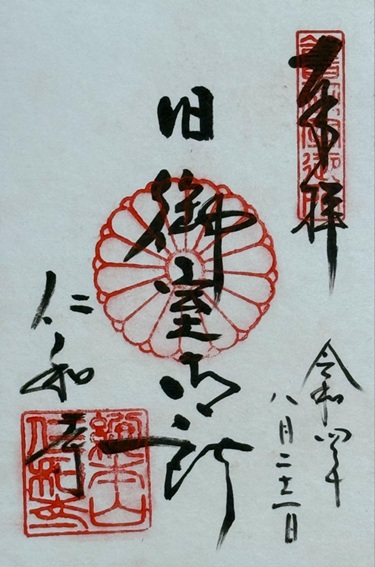 奉拝
令和四年
八月二十一日
旧御室御所
仁和寺
総本山仁和寺